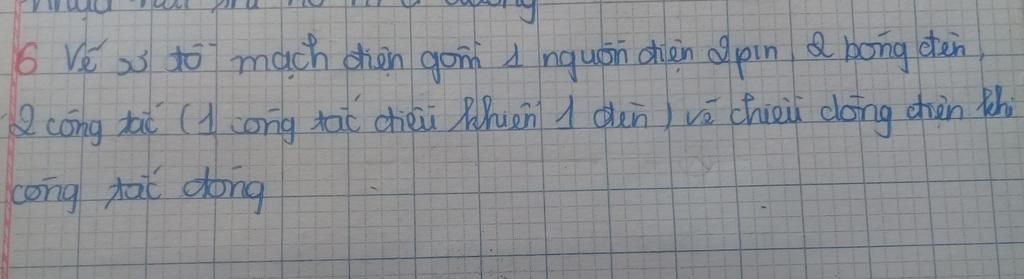 6 Vẽ sơ đồ mạch điện gồm 1 nguồn điện 2pin, 2 bóng đèn,
2 công tắc (1 công tắc điều khiển 1 đèn) vẽ chiều dòng điện khi
công tắc đóng